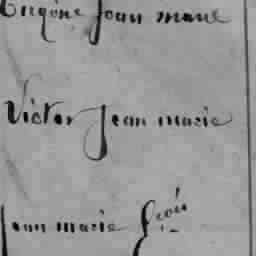 Eugène Jean marie
Victor Jean marie
Jean marie Léon